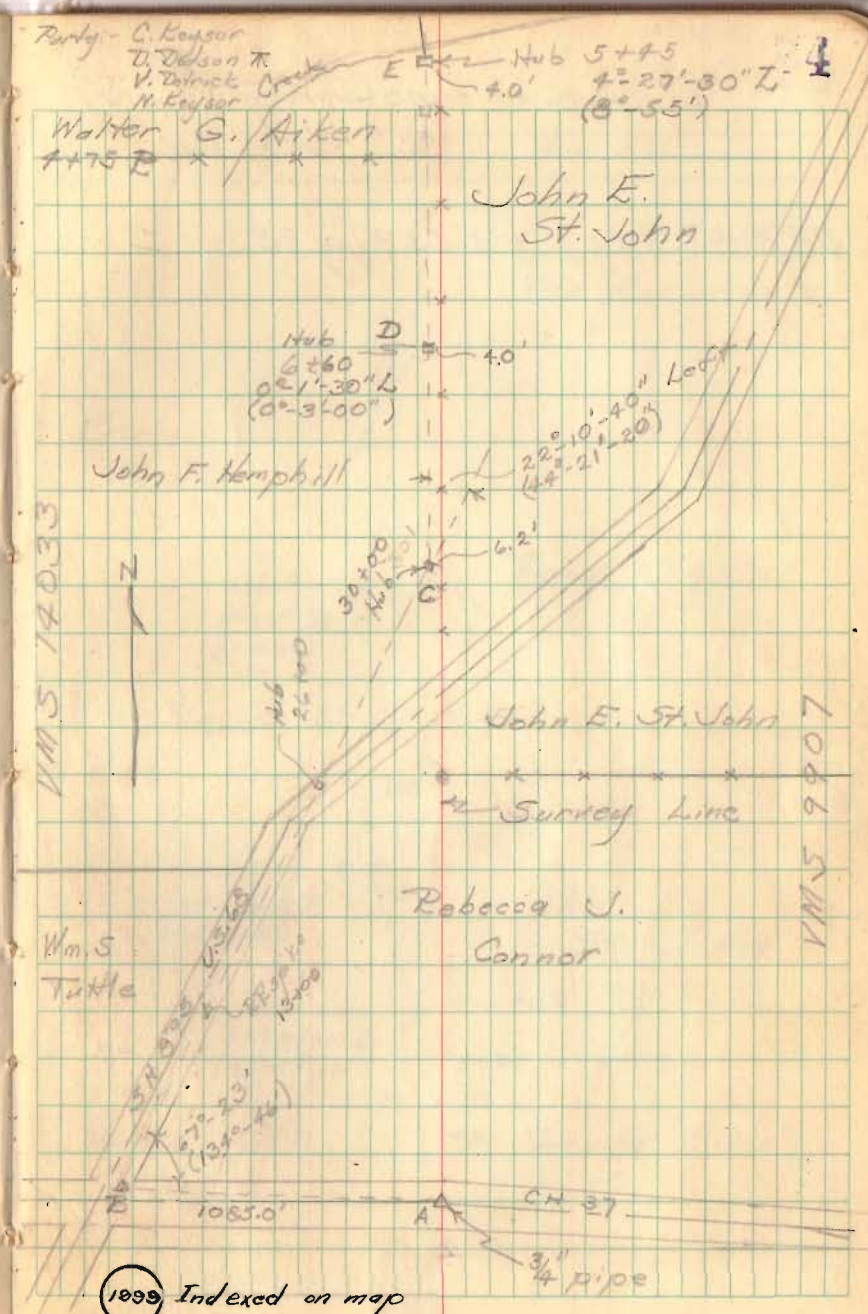 Party:- C. Keysor
D. Dodson π
V. Detrick
N. Keysor
Creek
E
Hub 5+45
4.0'
4°-27'-30" L
(8°-55')
4
Walter G. Aiken
4+75 PL
John E.
St. John
Hub
6+60
0°-1'-30" L
(0°-3'-00")
D
4.0'
22°-10'-40" Left
(44°-21'-20")
John F. Hemphill
VMS 14033
N
30+00
Hub
6.2'
C
Hub
26+00
John E. St. John
VMS 9907
Survey Line
Rebecca J.
Connor
Wm. S
Tuttle
U.S. 68
13+00
67°-23'
(134°-46')
B
1085.0'
A
CH 37
3/4" pipe
1899 Indexed on map